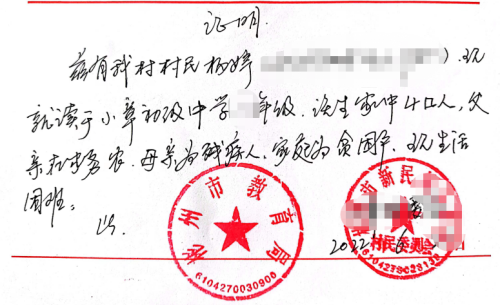 证明
兹有我村村民杨婷 ）. 现
就读于小章初级中学 年级. 该生家中4口人, 父
亲在家务农. 母亲为残疾人. 家庭为贫困户. 现生活
困难。
此.
彬州市教育局
6104270030900
市新民 村民委员会
2022